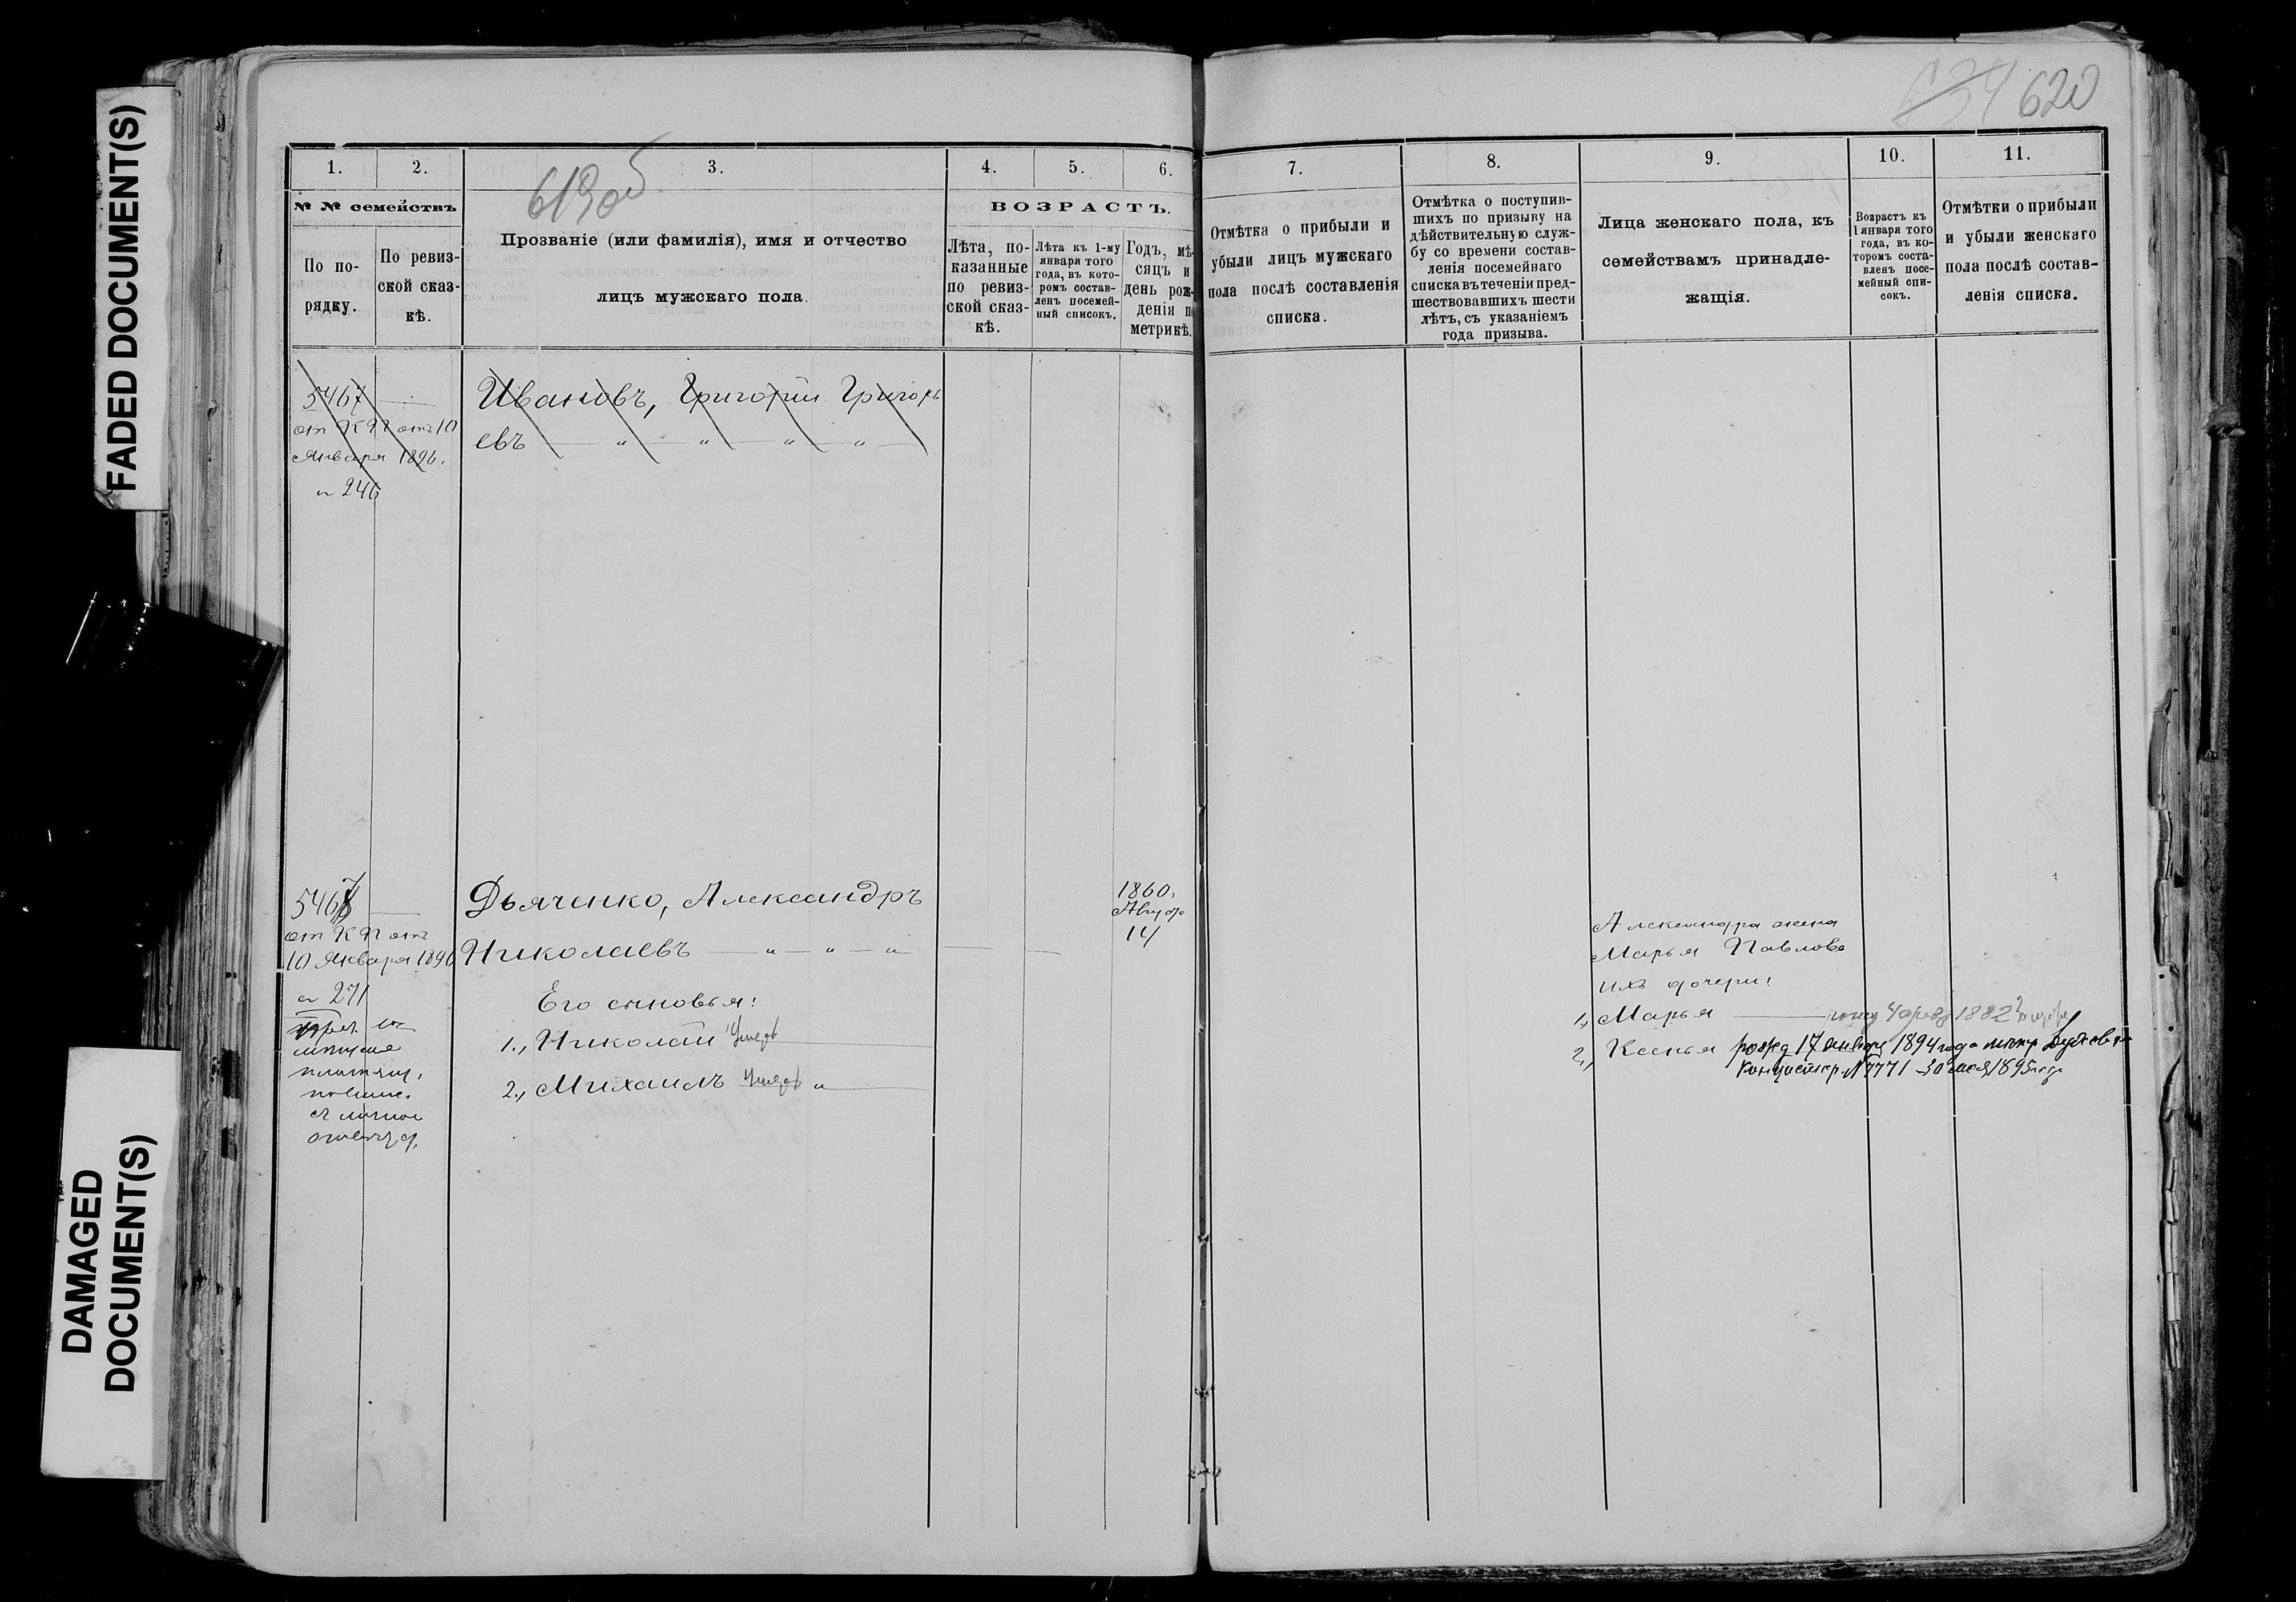 FADED DOCUMENT(S)
DAMAGED
DOCUMENT(S)
634 620
619 об
1. 2. 3. 4. 5. 6.
№ № семействъ
По по-
рядку.
По ревиз-
ской сказ-
кѣ.
Прозваніе (или фамилія), имя и отчество
лицъ мужскаго пола.
ВОЗРАСТЪ.
Лѣта, по-
казанные
по ревиз-
ской сказ-
кѣ.
Лѣта къ 1-му
января того
года, въ кото-
ромъ состав-
ленъ посемей-
ный списокъ.
Годъ, мѣ-
сяцъ и
день рож-
денія п
метрикѣ.
5467 —
от К П отъ 10
Января 1896.
№ 246
Ивановъ, Григорій Григорь
евъ — " — " — " — " —
5467 —
от К П отъ
10 Января 1896
№ 271
Дьяченко, Александръ
Николаевъ — " — " — "
1860.
Август
14
Его сыновья:
1., Николай
2., Михаилъ "
7. 8. 9. 10. 11.
Отмѣтка о прибыли и
убыли лицъ мужскаго
пола послѣ составленія
списка.
Отмѣтка о поступив-
шихъ по призыву на
дѣйствительную служ-
бу со времени состав-
ленія посемейнаго
списка въ теченіи пред-
шествовавшихъ шести
лѣтъ, съ указаніемъ
года призыва.
Лица женскаго пола, къ
семействамъ принадле-
жащія.
Возрастъ къ
1 января того
года, въ ко-
торомъ соста-
вленъ посе-
мейный спи-
сокъ.
Отмѣтки о прибыли
и убыли женскаго
пола послѣ состав-
ленія списка.
Александра жена
Марья Павлова
ихъ дочери:
1., Марья — 1882
2., Ксенья рожд 17 января 1894 года метр Духов
Консистор. № 7771 30 1895 года